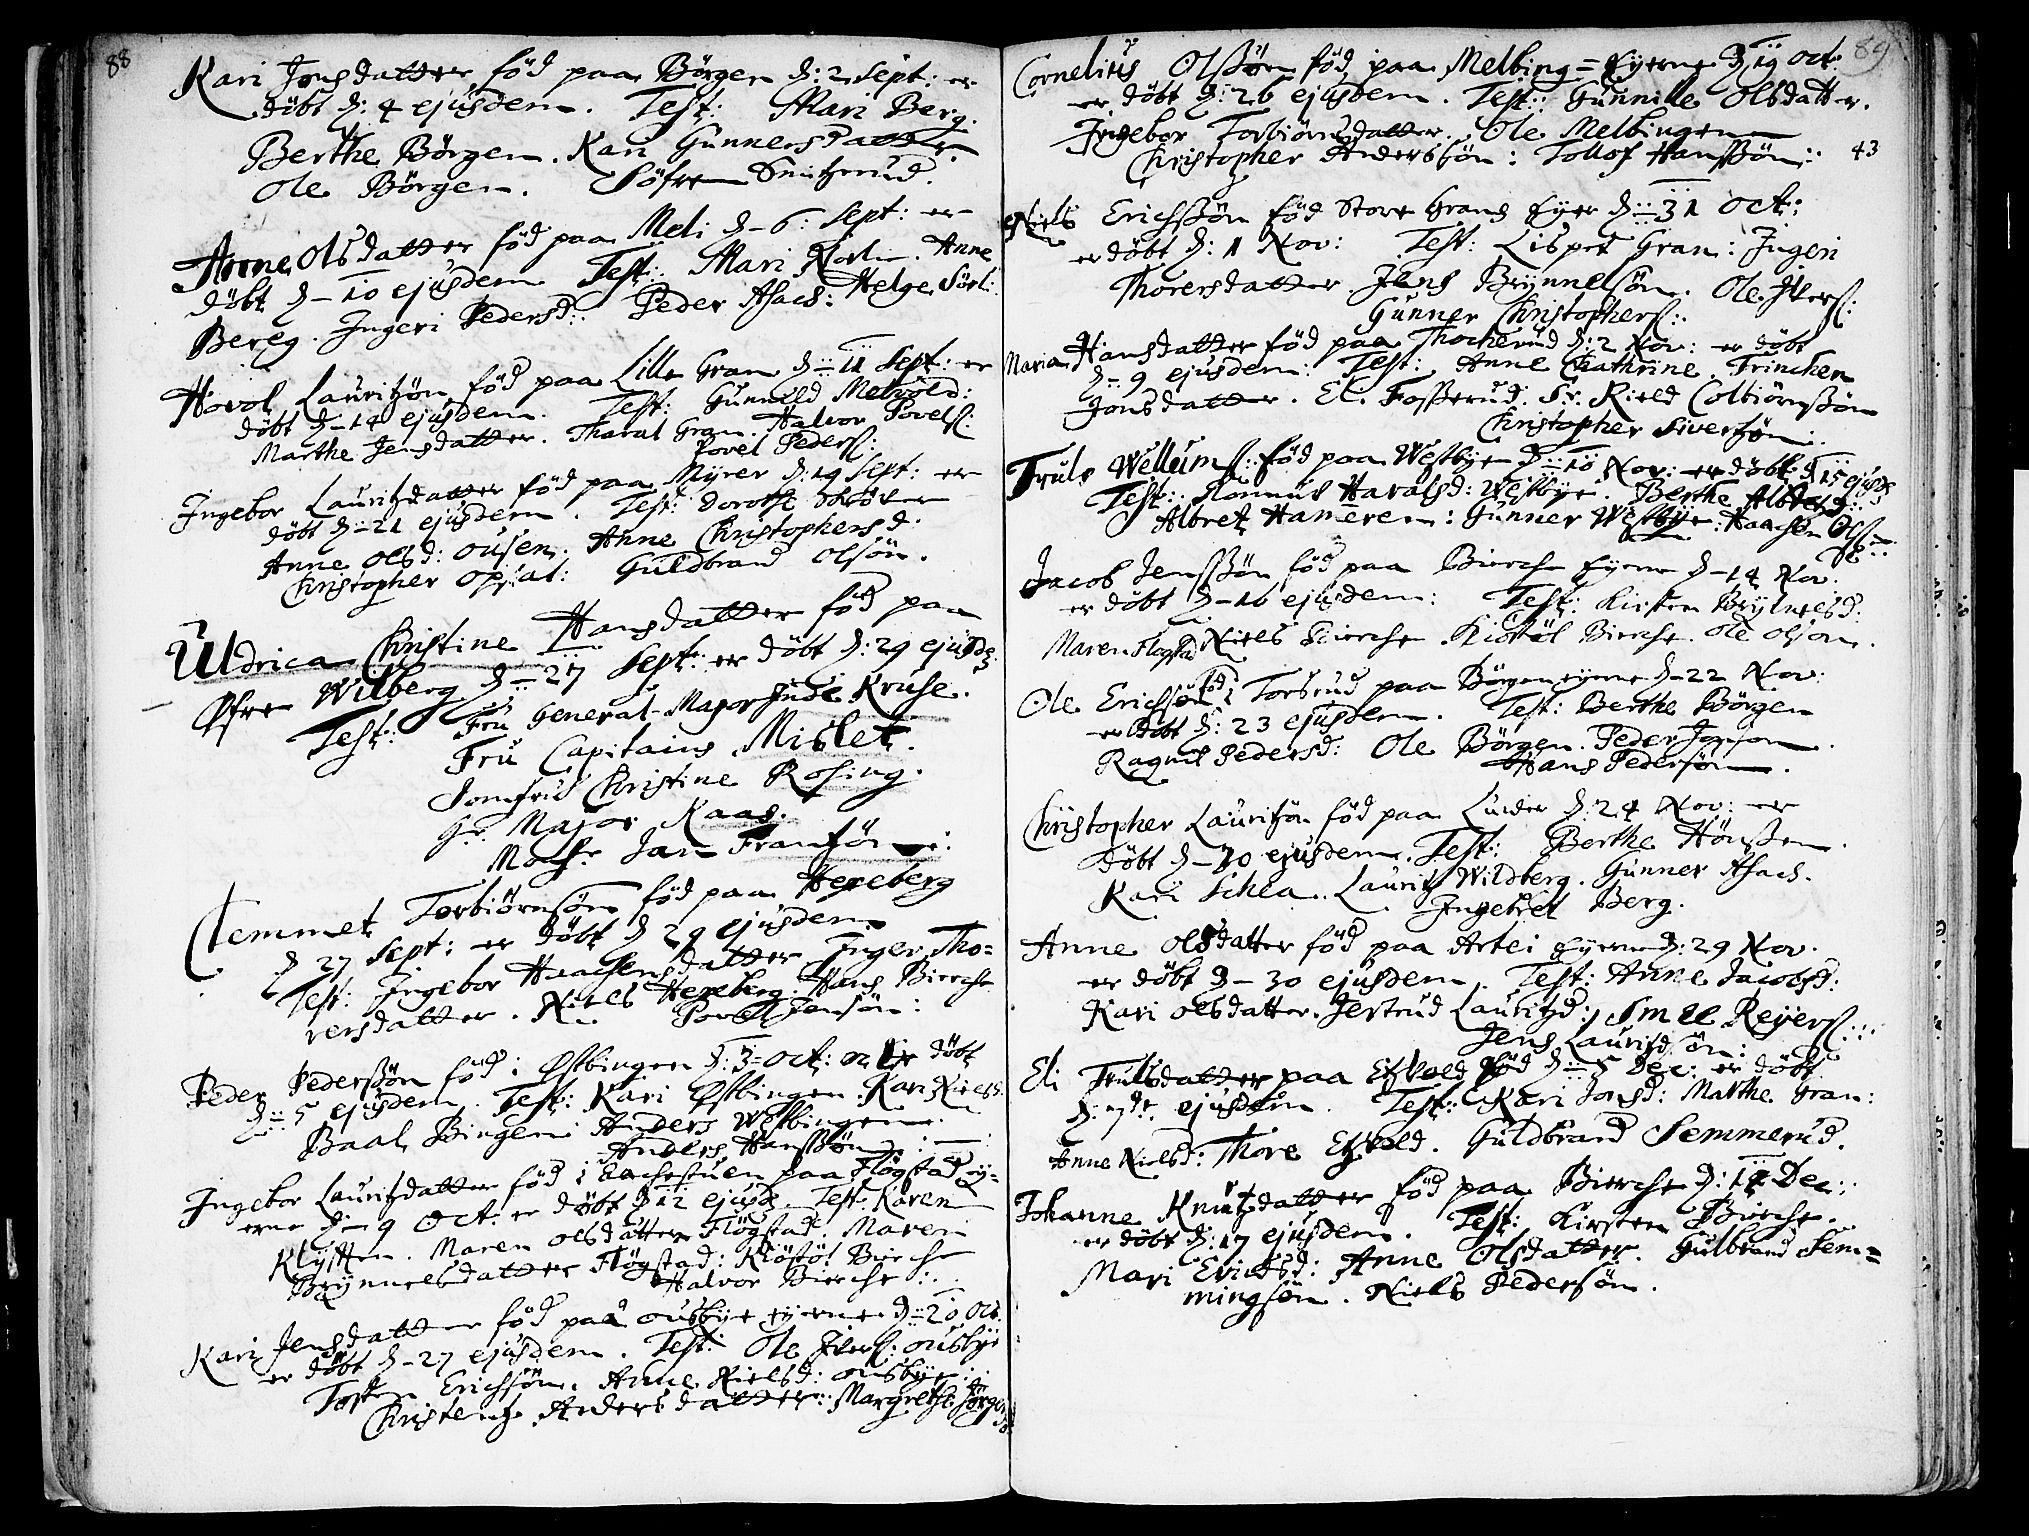 88
Kari Jonsdatter föd paa Börgen d: 2 Sept: er
döbt d: 4 ejusdem. Test: Mari Berg.
Berthe Börgen. Kari Gunnersdatter.
Ole Börgen. Söfren Smitzerud.
Anne Olsdatter föd paa Meli d-6: Sept: er
döbt d-10 ejusdem Test: Mari Norlie. Anne
Bereg. Ingeri Pedersd: Peder Asach: Helge Sörl:
Hovol Lauritzön föd paa Lille Gran d: 11 Sept: er
döbt d-14 ejusdem. Test: Gunnild Melvold:
Marthe Jensdatter. Tharal Gran. Halvor Povels:
Povel Peders:
Ingebor Lauritzdatter föd paa Myrer d: 19 Sept: er
döbt d-21 ejusdem. Test: Dorothe
Anne Olsd: Ousen. Anne Christophersd.
Christopher Opsat: Guldbrand Olsön.
Uldrica Christine Hansdatter föd paa
Öfre Wilberg d: 27 Sept: er döbt d: 29 ejusd:
Test: Fru General-Majorinde Kruse.
Fru Capitains Mislet.
Jomfru Christine Rosing.
Hr Major Kaas.
Monsr Jan Franzön:
Clemmet Torbiörnsön föd paa Hexeberg
d 27 Sept: er döbt d 29 ejusdem
Test: Ingebor Haachensdatter Inger Tho=
rersdatter. Niels Hexeberg: Hans Bierche
Povel Jensön:
Peder Pedersön föd i Östbingen d: 3 = Oct: er döbt
d: 5 ejusdem. Test: Kari Östbingen. Kari Nielsd.
Baal Bingen. Anders Westbingen.
Anders Hanssön:
Ingebor Lauritzdatter föd i Bachestuen paa Flögstad ey=
erne d-9 Oct: er döbt d 12 ejusd. Test: Karen
Klyften. Maren Olsdatter Flögstad. Maren
Brynnelsdatter Flögstad: Kiöstöl Bierche
Halvor Bierche:
Kari Jensdatter föd paa Ousbye eyerne d: 20 Oct.
er döbt d-27 ejusdem. Test: Ole Ivers: Ousbye
Torsten Erichsön. Anne Nielsd: Ousbye:
Christentz Andersdatter: Margrethe Jörgensd
89
Cornelius Olssön föd paa Melbing = Eyerne d 19 Oct:
er döbt d: 26 ejusdem. Test: Gunnille Olsdatter.
Ingebor Torbiörnsdatter. Ole Melbingen
Christopher Anderssön: Tollof Hanssön:
43
Niels Erichssön föd Store Grans Eyer d: 31 Oct:
er döbt d: 1 Nov: Test: Lispet Gran: Ingeri
Thorersdatter. Jens Brynnelsön. Ole Ivers:
Gunner Christophers:
Maria Hansdatter föd paa Thocherud d: 2 Nov: er döbt
d = 9 ejusdem: Test: Anne Cathrine. Trinchen
Jonsdatter. Eli Fosserud. Sr. Kield Colbiörnssön
Christopher Siversön:
Truls Wellums: föd paa Westbye d: 10 Nov: er döbt d 15 ejusd
Test: Ronnus Haralsd: Westbye. Berthe Albretsd:
Albret Hameren: Gunner Westbye: Haachen Ols:
Jacob Jenssön föd paa Bierche Eyerne d-14 Nov:
er döbt d-16 ejusdem: Test: Kirsten Brylnelsd:
Maren Flogstad Niels Bierche. Kiöstöl Bierche. Ole Olsøn.
Ole Erichssön föd i Torsrud paa Börgen eyerne d-22 Nov:
er döbt d: 23 ejusdem. Test: Berthe Börgen
Ragnil Pedersd: Ole Börgen. Peder Jonsøn.
Hans Pedersön.
Christopher Lauritzön föd paa Linder d: 24 Nov: er
döbt d-30 ejusdem. Test: Berthe Hönssen.
Kari Schea. Lauritz Wildberg. Gunner Asach.
Ingebret Berg.
Anne Olsdatter föd paa Artei Eyerne d: 29 Nov.
er döbt d-30 ejusdem. Test: Anne Jacobsd:
Kari Olsdatter. Jertrud Lauritzd: Smel Reyers:
Jens Lauritzön:
Eli Trulsdatter paa Exvold föd d: 5 Dec: er döbt
d: 7de ejusdem. Test: Kari Jonsd: Marthe Gran:
Anne Nielsd: Thore Exvold. Guldbrand Semmerud.
Johanne Knutzdatter föd paa Bierche d: 14 Dec:
er döbt d: 17 ejusdem. Test: Kirsten Bierche.
Mari Erichsd: Anne Olsdatter. Gulbrand Sem=
mingsön. Niels Pedersön.